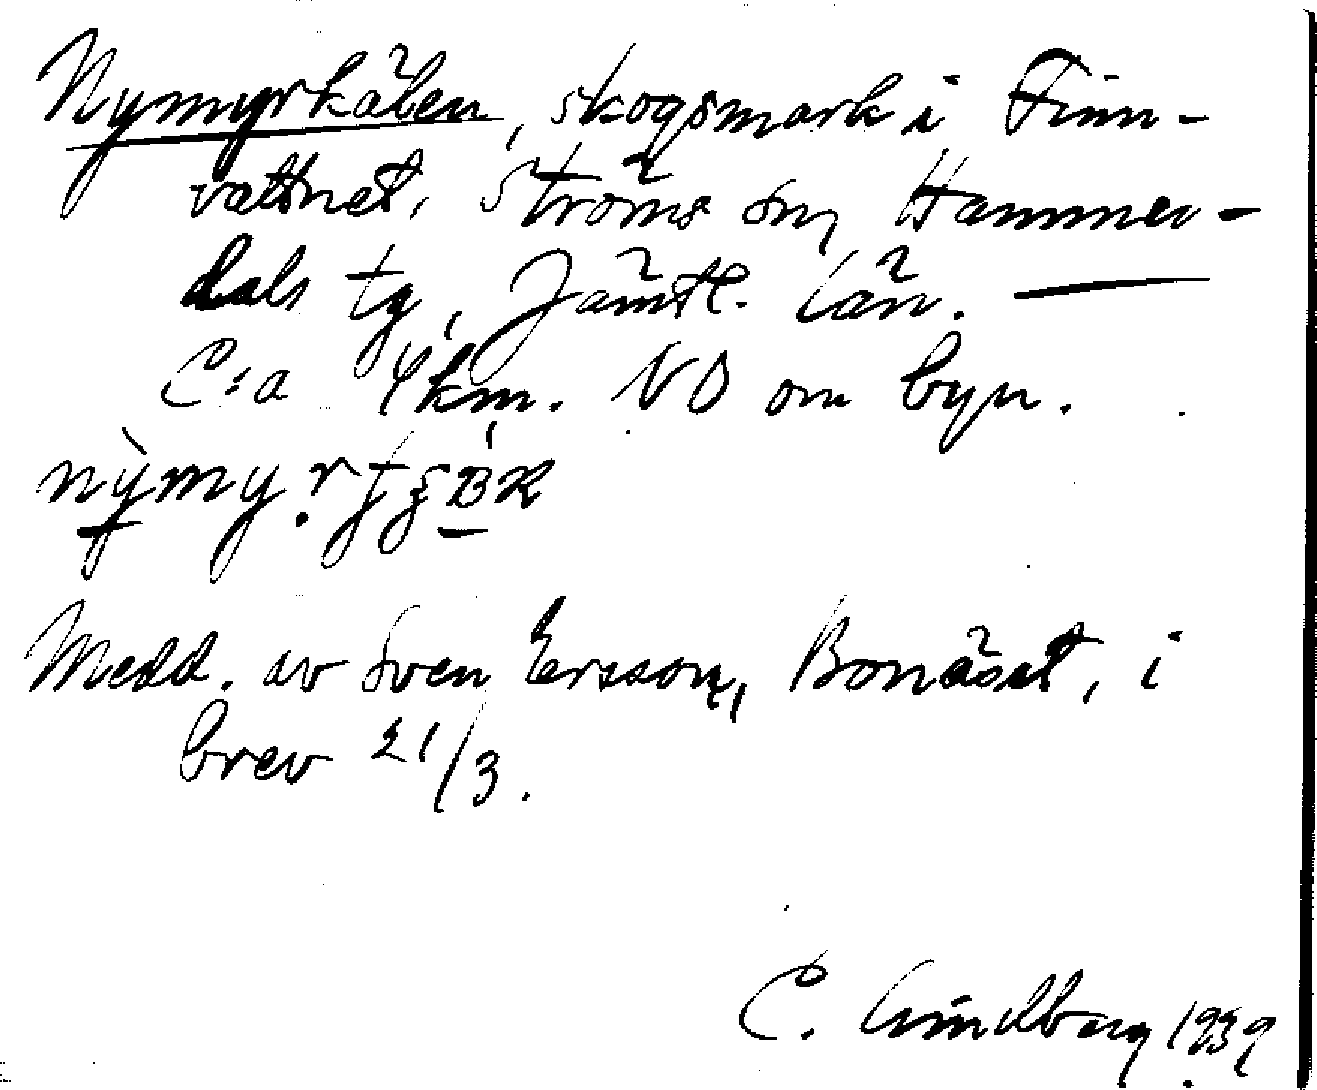 Nymyrkälen, skogsmark i Finn-
vattnet, Ströms sn, Hammer-
dals tg, Jämtl. län. —
C:a 4 km. NO om byn.
Medd. av Sven Ersson, Bonäset, i
brev 21/3.
C. Lindberg 1939